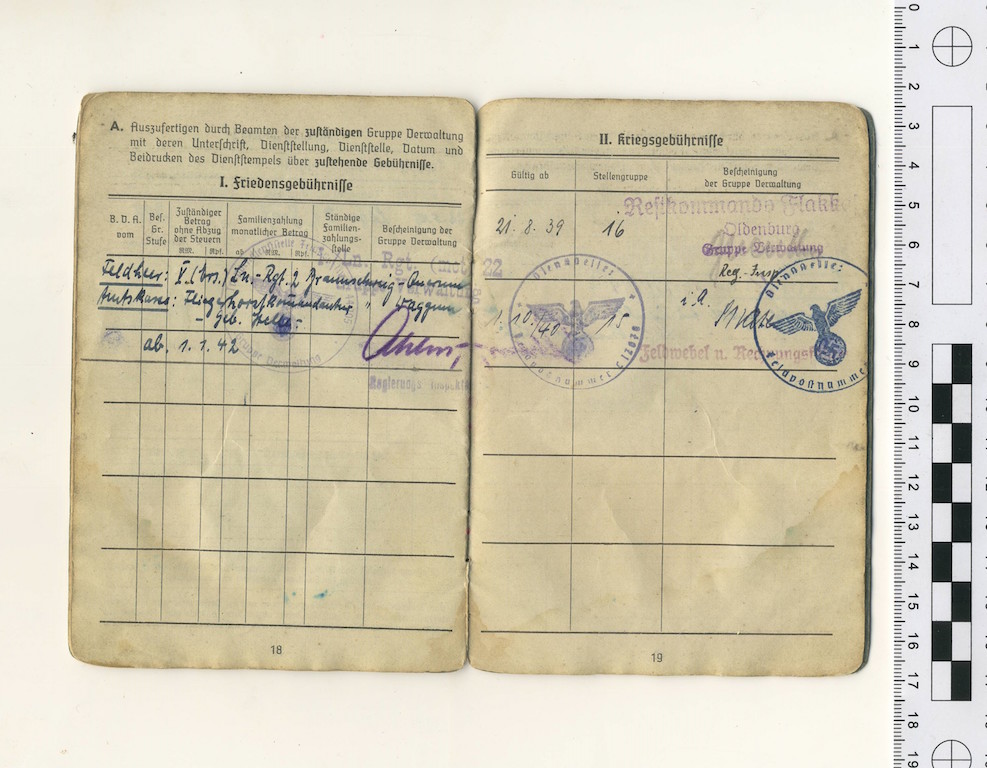 A. Auszufertigen durch Beamten der zuständigen Gruppe Verwaltung
mit deren Unterschrift, Dienststellung, Dienststelle, Datum und
Beidrucken des Dienststempels über zustehende Gebührnisse.
I. Friedensgebührnisse
B. D. A. vom
Bes. Gr. Stufe
Zuständiger Betrag ohne Abzug der Steuern
RM. Rpf.
Familienzahlung monatlicher Betrag
ab RM. Rpf.
Ständige Familienzahlungsstelle
Bescheinigung der Gruppe Verwaltung
Feldheer: V. Ln.-Rgt. 2 Braunschweig-
Amtskasse: Fliegerhorstkommandantur " Waggum
- Geb. Stelle -
ab. 1. 1. 42
Ahlers
18
II. Kriegsgebührnisse
Gültig ab
Stellengruppe
Bescheinigung der Gruppe Verwaltung
21. 8. 39
16
Restkommando Flakk
Oldenburg
Gruppe Verwaltung
Reg.-Insp.
1. 10. 40
15
i. A.
Feldwebel u. Rechnungsf
Dienststelle:
Feldpostnummer
Dienststelle:
Feldpostnumme
19
0
1
2
3
4
5
6
7
8
9
10
11
12
13
14
15
16
17
18
19